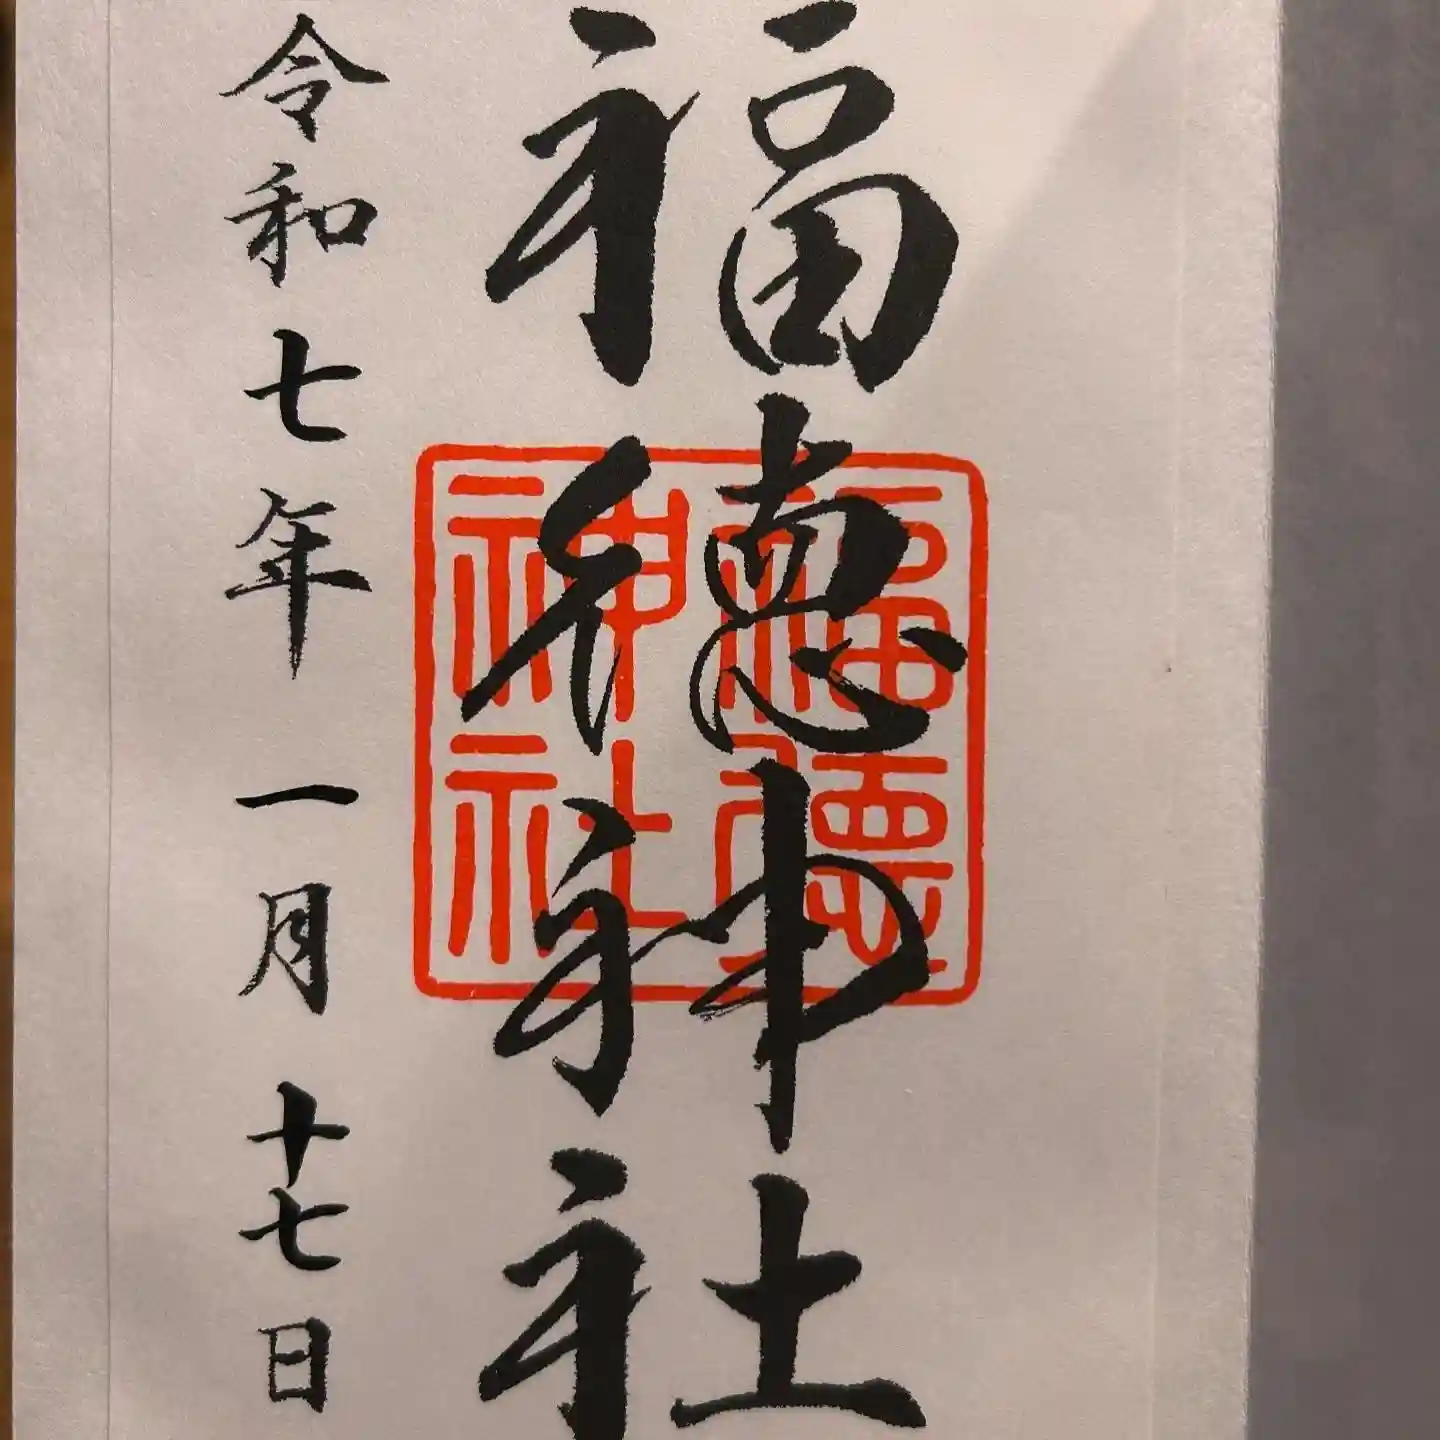 福徳神社
福德神社
令和七年一月十七日